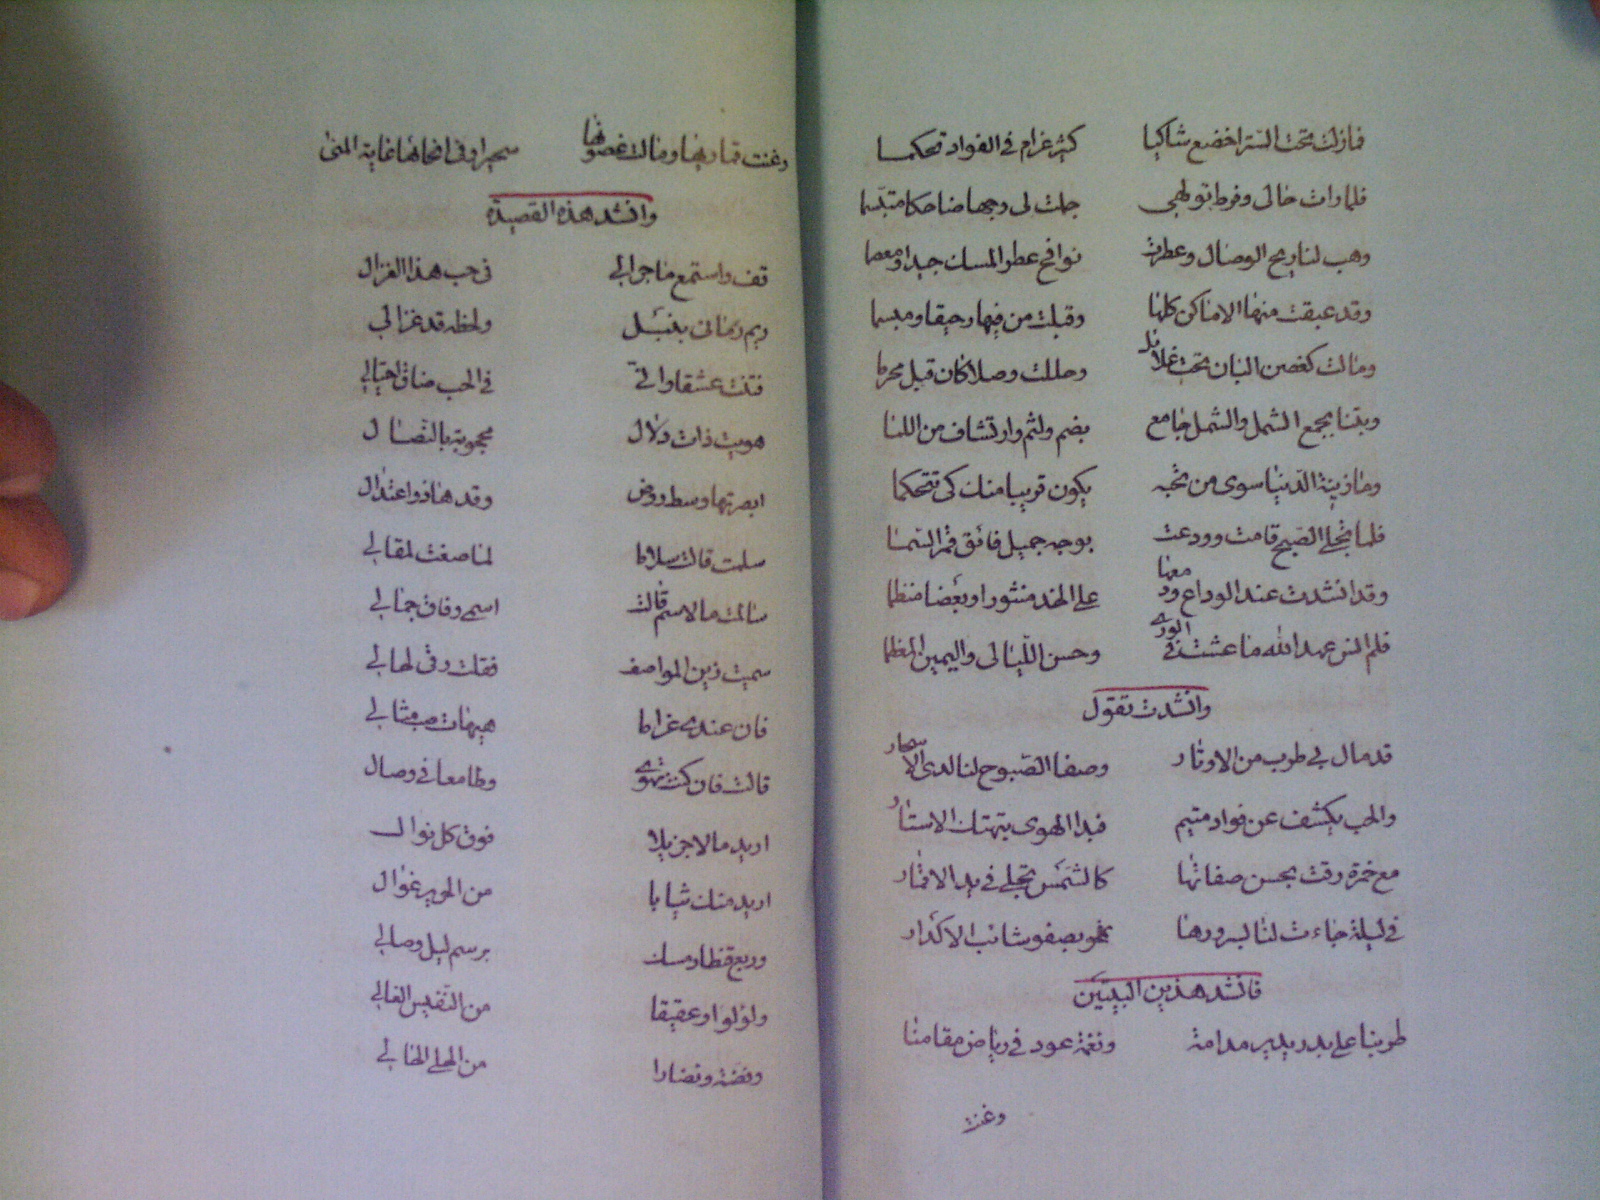 فمازلت تحت الستر اخضع شاكيا كثير غرام في الفواد تحكما
فلما رات حالى وفرط تولهى جلت لى وجها ضاحكا متبسما
وهب لنا ريح الوصال وعطرت نوافح عطر المسك جيدا ومعصما
وقد عبقت منها الاماكن كلها وقبلت من فيها رحيقا ومبسما
ومالت كغصن البان تحت غلائل وحللت وصلا كان قبل محرما
وبتنا بجمع الشمل والشمل جامع بضم ولثم وارتشاف من اللما
وما زينة الدنيا سوى من تحبه يكون قريبا منك كى تتحكما
فلما تجلى الصبح قامت وودعت بوجه جميل فائق قمر السما
وقد انشدت عند الوداع ودمعها على الخد منثورا وبعضا منظما
فلم انس عهد الله ما عشت في الورى وحسن الليالى واليمين المعظما
وانشدت تقول
قد مال بى طرب من الاوتار وصفا الصبوح لنا لدى الاسحار
والحب يكشف عن فواد متيم فبدا الهوى بتهتك الاستار
مع خمرة رقت بحسن صفاتها كالشمس تجلى في يد الاقمار
في ليلة جاءت لنا بسرورها تمحو بصفو شائب الاكدار
فانشد هذين البيتين
طربنا على بدر يدير مدامة ونغمة عود في رياض مقامنا
وغنت
وغنت قماريها ومالت غصونها سحيرا وفى انحائها غاية المنى
وانشد هذه القصيدة
قف واستمع ما جرالي في حب هذا الغزال
ريم رمانى بنبل ولحظه قد غزالي
فتنت عشقا وانى في الحب ضاق احتيالي
هويت ذات دلال محجوبة بالنصال
ابصرتها وسط روض وقدها ذو اعتدال
سلمت قالت سلاما لما صغت لمقالي
سالت ما الاسم قالت اسمى وفاق جمالي
سميت زين المواصف فقلت رقى لحالي
فان عندى غراما هيهات صب مثالي
قالت فان كنت تهوى وطامعا في وصال
اريد مالا جزيلا فوق كل نوال
اريد منك ثيابا من الحرير غوال
وربع قنطار مسك برسم ليل وصالي
ولؤلوا وعقيقا من النفيس الغالي
وفضة ونضارا من الحلى الحالي